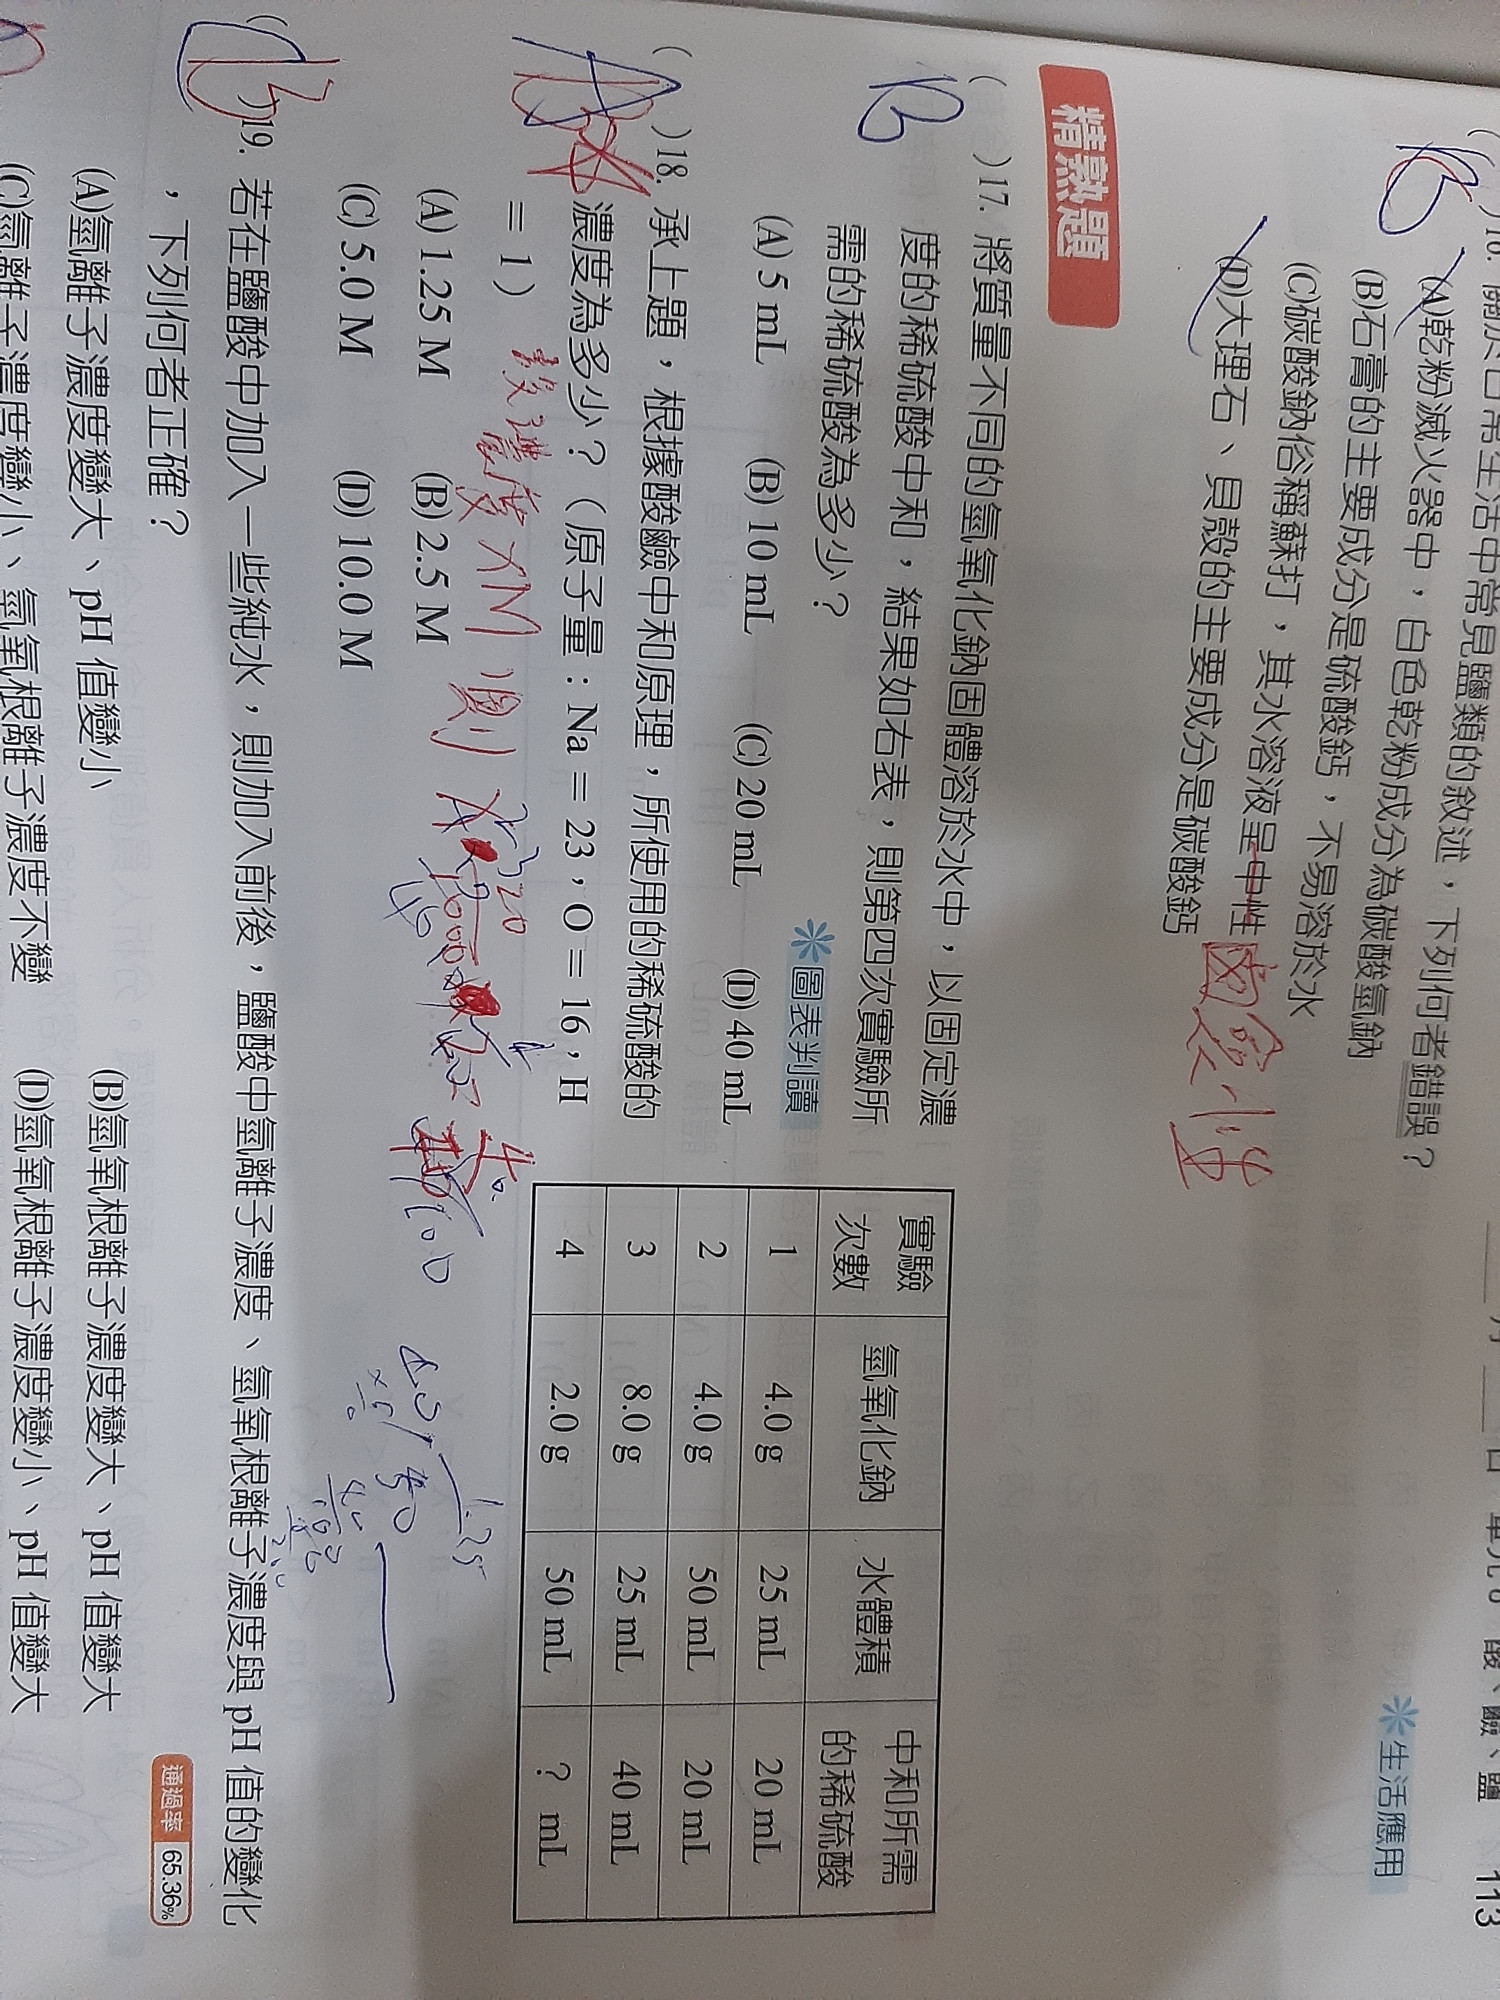 113
＊生活應用
關於日常生活中常見鹽類的敘述，下列何者錯誤？
B
(A)乾粉滅火器中，白色乾粉成分為碳酸氫鈉
(B)石膏的主要成分是硫酸鈣，不易溶於水
(C)碳酸鈉俗稱蘇打，其水溶液呈中性
(D)大理石、貝殼的主要成分是碳酸鈣
精熟題
B
( )17. 將質量不同的氫氧化鈉固體溶於水中，以固定濃
度的稀硫酸中和，結果如右表，則第四次實驗所
需的稀硫酸為多少？
＊圖表判讀
(A) 5 mL (B) 10 mL (C) 20 mL (D) 40 mL
實驗次數 氫氧化鈉 水體積 中和所需的稀硫酸
1 4.0 g 25 mL 20 mL
2 4.0 g 50 mL 20 mL
3 8.0 g 25 mL 40 mL
4 2.0 g 50 mL ？ mL
( )18. 承上題，根據酸鹼中和原理，所使用的稀硫酸的
濃度為多少？（原子量：Na＝23，O＝16，H
＝1）
設濃度XM 則
(A) 1.25 M (B) 2.5 M
(C) 5.0 M (D) 10.0 M
1.25
( )19. 若在鹽酸中加入一些純水，則加入前後，鹽酸中氫離子濃度、氫氧根離子濃度與 pH 值的變化
，下列何者正確？
通過率 65.36%
(A)氫離子濃度變大、pH 值變小 (B)氫氧根離子濃度變大、pH 值變大
(C)氫離子濃度變小、氫氧根離子濃度不變 (D)氫氧根離子濃度變小、pH 值變大